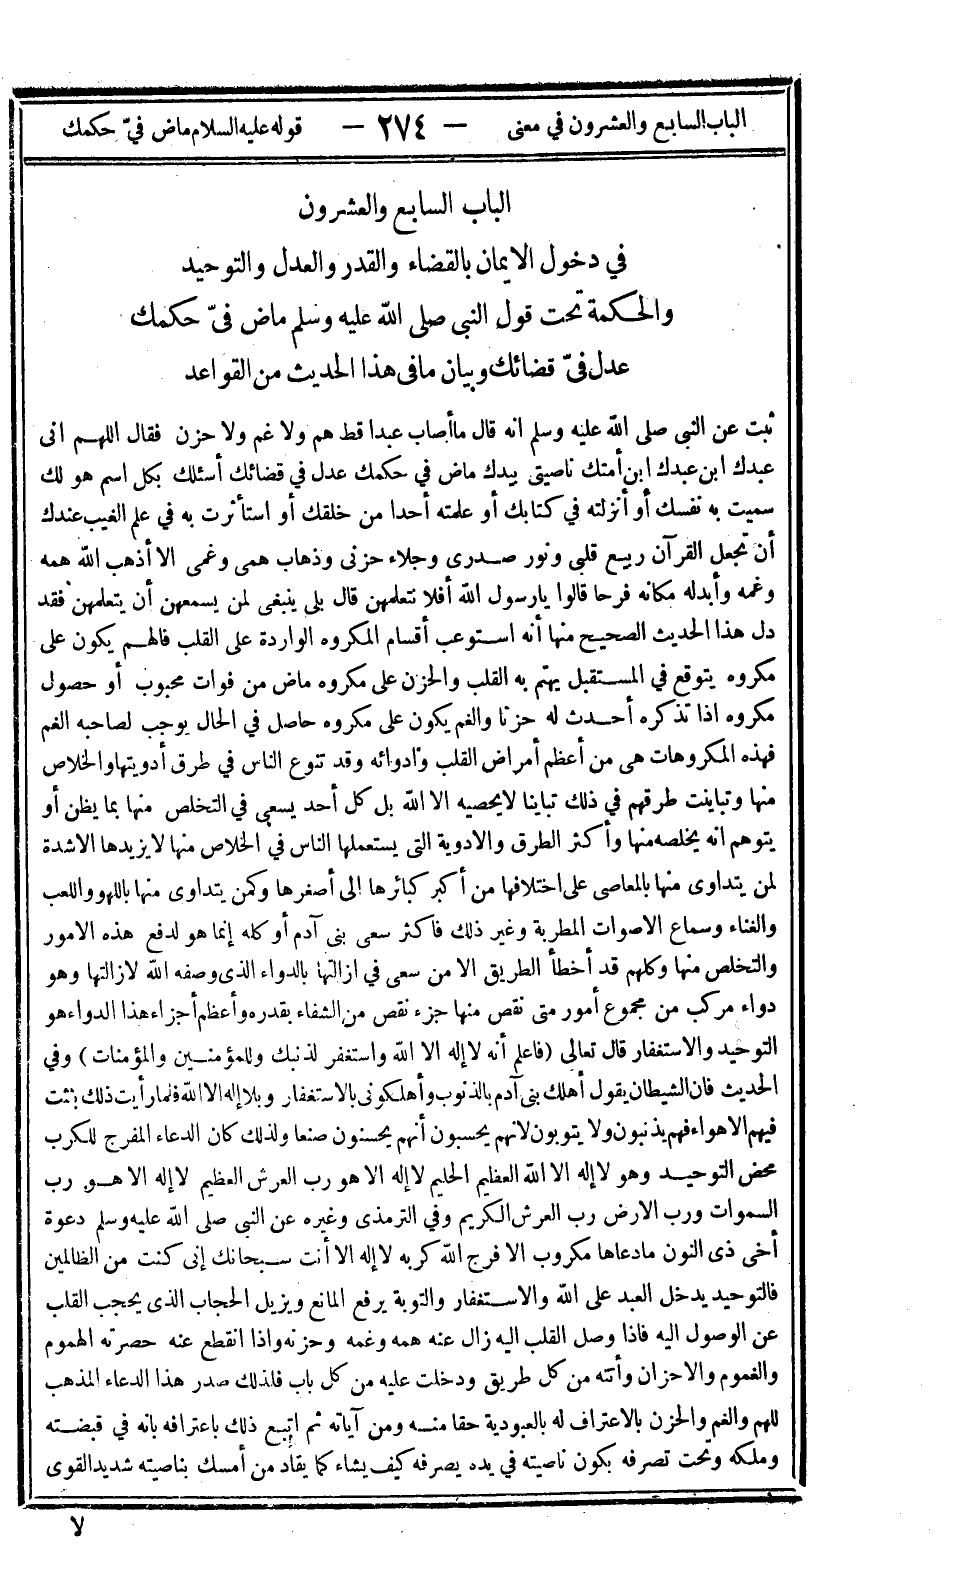 الباب السابع والعشرون في معنى — ٢٧٤ — قوله عليه السلام ماض فيّ حكمك
الباب السابع والعشرون
في دخول الايمان بالقضاء والقدر والعدل والتوحيد
والحكمة تحت قول النبي صلى الله عليه وسلم ماض فىّ حكمك
عدل فىّ قضائك وبيان مافى هذا الحديث من القواعد
ثبت عن النبي صلى الله عليه وسلم انه قال ماأصاب عبدا قط هم ولا غم ولا حزن فقال اللهم انى
عبدك ابن عبدك ابن أمتك ناصيتي بيدك ماض في حكمك عدل في قضائك أسئلك بكل اسم هو لك
سميت به نفسك أو أنزلته في كتابك أو علمته أحدا من خلقك أو استأثرت به في علم الغيب عندك
أن تجعل القرآن ربيع قلبي ونور صدرى وجلاء حزنى وذهاب همى وغمى الا أذهب الله همه
وغمه وأبدله مكانه فرحا قالوا يارسول الله أفلا نتعلمهن قال بلى ينبغى لمن يسمعهن أن يتعلمهن فقد
دل هذا الحديث الصحيح منها أنه استوعب أقسام المكروه الواردة على القلب فالهم يكون على
مكروه يتوقع في المستقبل يهتم به القلب والحزن على مكروه ماض من فوات محبوب أو حصول
مكروه اذا تذكره أحدث له حزنا والغم يكون على مكروه حاصل في الحال يوجب لصاحبه الغم
فهذه المكروهات هى من أعظم أمراض القلب وأدوائه وقد تنوع الناس في طرق أدويتها والخلاص
منها وتباينت طرقهم في ذلك تباينا لايحصيه الا الله بل كل أحد يسعى في التخلص منها بما يظن أو
يتوهم انه يخلصه منها وأكثر الطرق والادوية التى يستعملها الناس في الخلاص منها لايزيدها الاشدة
لمن يتداوى منها بالمعاصى على اختلافها من أكبر كبائرها الى أصغرها وكمن يتداوى منها باللهو واللعب
والغناء وسماع الاصوات المطربة وغير ذلك فاكثر سعى بنى آدم أو كله إنما هو لدفع هذه الامور
والتخلص منها وكلهم قد أخطأ الطريق الا من سعى في ازالتها بالدواء الذى وصفه الله لازالتها وهو
دواء مركب من مجموع أمور متى نقص منها جزء نقص من الشفاء بقدره وأعظم أجزاء هذا الدواء هو
التوحيد والاستغفار قال تعالى (فاعلم أنه لاإله الا الله واستغفر لذنبك وللمؤمنين والمؤمنات) وفي
الحديث فان الشيطان يقول أهلك بنى آدم بالذنوب وأهلكونى بالاستغفار وبلا إله الا الله فلما رأيت ذلك بثثت
فيهم الاهواء فهم يذنبون ولا يتوبون لانهم يحسبون أنهم يحسنون صنعا ولذلك كان الدعاء المفرج للكرب
محض التوحيد وهو لاإله الا الله العظيم الحليم لاإله الا هو رب العرش العظيم لاإله الا هو رب
السموات ورب الارض رب العرش الكريم وفي الترمذى وغيره عن النبي صلى الله عليه وسلم دعوة
أخى ذى النون مادعاها مكروب الا فرج الله كربه لاإله الا أنت سبحانك إنى كنت من الظالمين
فالتوحيد يدخل العبد على الله والاستغفار والتوبة يرفع المانع ويزيل الحجاب الذى يحجب القلب
عن الوصول اليه فاذا وصل القلب اليه زال عنه همه وغمه وحزنه واذا انقطع عنه حصرته الهموم
والغموم والاحزان وأتته من كل طريق ودخلت عليه من كل باب فلذلك صدر هذا الدعاء المذهب
للهم والغم والحزن بالاعتراف له بالعبودية حقا منه ومن آياته ثم اتبع ذلك باعترافه بانه في قبضته
وملكه وتحت تصرفه بكون ناصيته في يده يصرفه كيف يشاء كما يقاد من أمسك بناصيته شديد القوى
لا